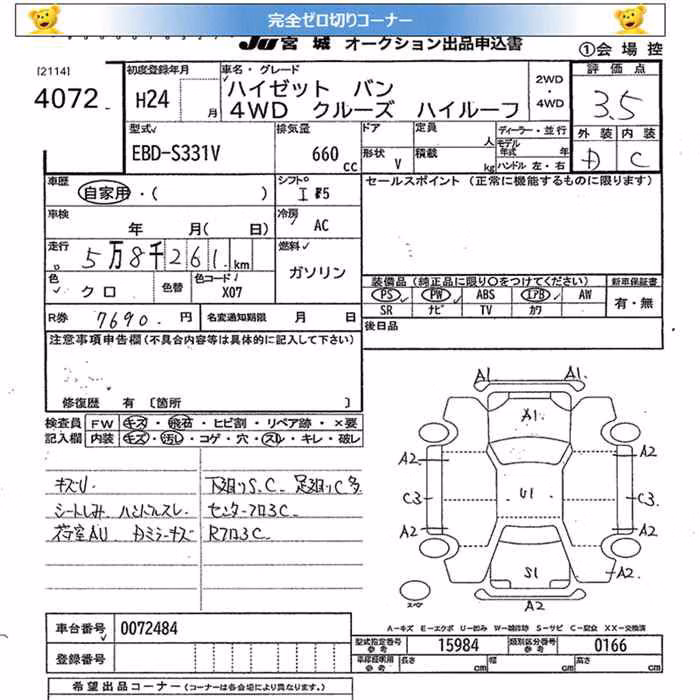 完全ゼロ切りコーナー
JU宮城 オークション出品申込書
①会場控
[2114]
4072
初度登録年月
H24 月
車名・グレード
ハイゼット バン
4WD クルーズ ハイルーフ
2WD
・
4WD
評価点
3.5
型式
EBD-S331V
排気量
660 cc
ドア
形状 V
定員 人
積載 kg
ディーラー・並行
モデル年式 年
ハンドル 左・右
外装 内装
D C
車歴
自家用・( )
シフト
I F5
セールスポイント (正常に機能するものに限ります)
車検
年 月( 日)
冷房
AC
走行
5万8千261 km
燃料
ガソリン
色
クロ
色替
色コード
X07
装備品(純正品に限り○をつけてください)
新車保証書
PS PW ABS エアB AW
有・無
SR ナビ TV カワ
R券 7690. 円
名変通知期限 月 日
後日品
注意事項申告欄(不具合内容等は具体的に記入して下さい)
修復歴 有 〔箇所 〕
検査員
記入欄
FW キズ・飛石・ヒビ割・リペア跡・×要
内装 キズ・汚し・コゲ・穴・スレ・キレ・破レ
キズU
シートしみ ハンドルスレ
荷室AU Dミラーキズ
下廻りS.C 足廻りC多
センターフロ3C
Rフロ3C
A1 A1
A1
A2 A2
C3 U1 C3
A2 A2
S1 A2
A2
スペア
A-キズ E-エクボ U-凹み W-補修跡 S-サビ C-腐食 XX-交換済
車台番号 0072484
登録番号
型式指定番号 参考 15984
類別区分番号 参考 0166
車庫証明用 参考 長さ cm 幅 cm 高さ cm
希望出品コーナー (コーナーは各会場により異なります。)